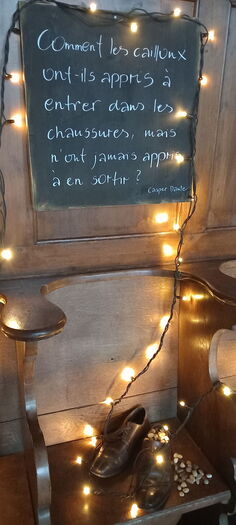 Comment les cailloux
ont-ils appris à
entrer dans les
chaussures, mais
n'ont jamais appris
à en sortir ?
Casper